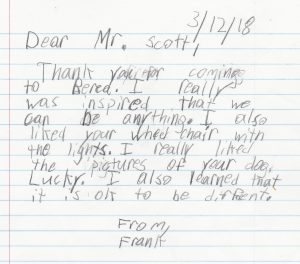 3/12/18
Dear Mr. Scott,
Thank you for coming
to Bered. I really
was inspired that we
can be anything. I also
liked your wheel chair with
the lights. I really liked
the pigtures of your dog,
Lucky. I also learned that
it is ok to be diffrent.
From,
Frank